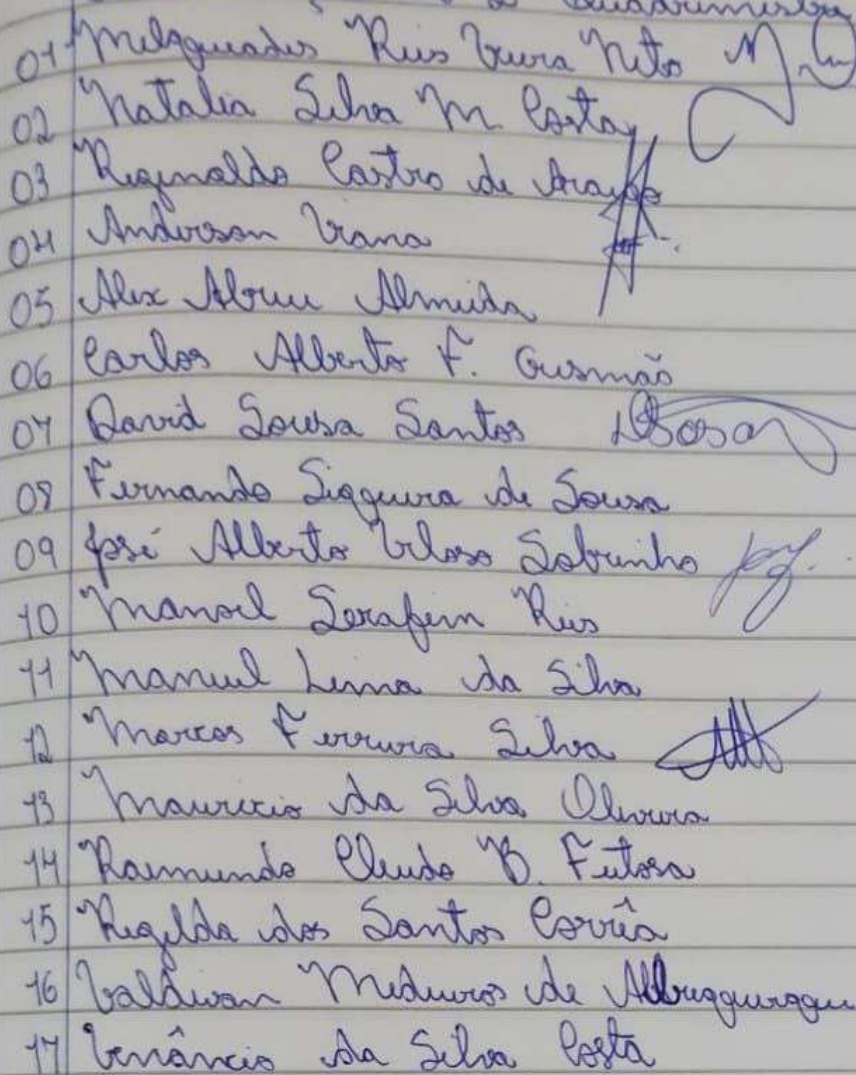 2 Quadrimestre
01 Melquiades Reis Vieira Neto
02 Natalia Silva M. Costa
03 Reginaldo Castro de Araujo
04 Anderson Viana
05 Alex Abreu Almeida
06 Carlos Alberto F. Gusmão
07 David Sousa Santos
08 Fernando Siqueira de Sousa
09 José Alberto Veloso Sobrinho
10 Manoel Serafim Reis
11 Manuel Lima da Silva
12 Marcos Ferreira Silva
13 Mauricio da Silva Oliveira
14 Raimundo Cleudo B. Feitosa
15 Regilda dos Santos Corrêa
16 Valdivan Medeiros de Albuquerque
17 Venâncio da Silva Costa